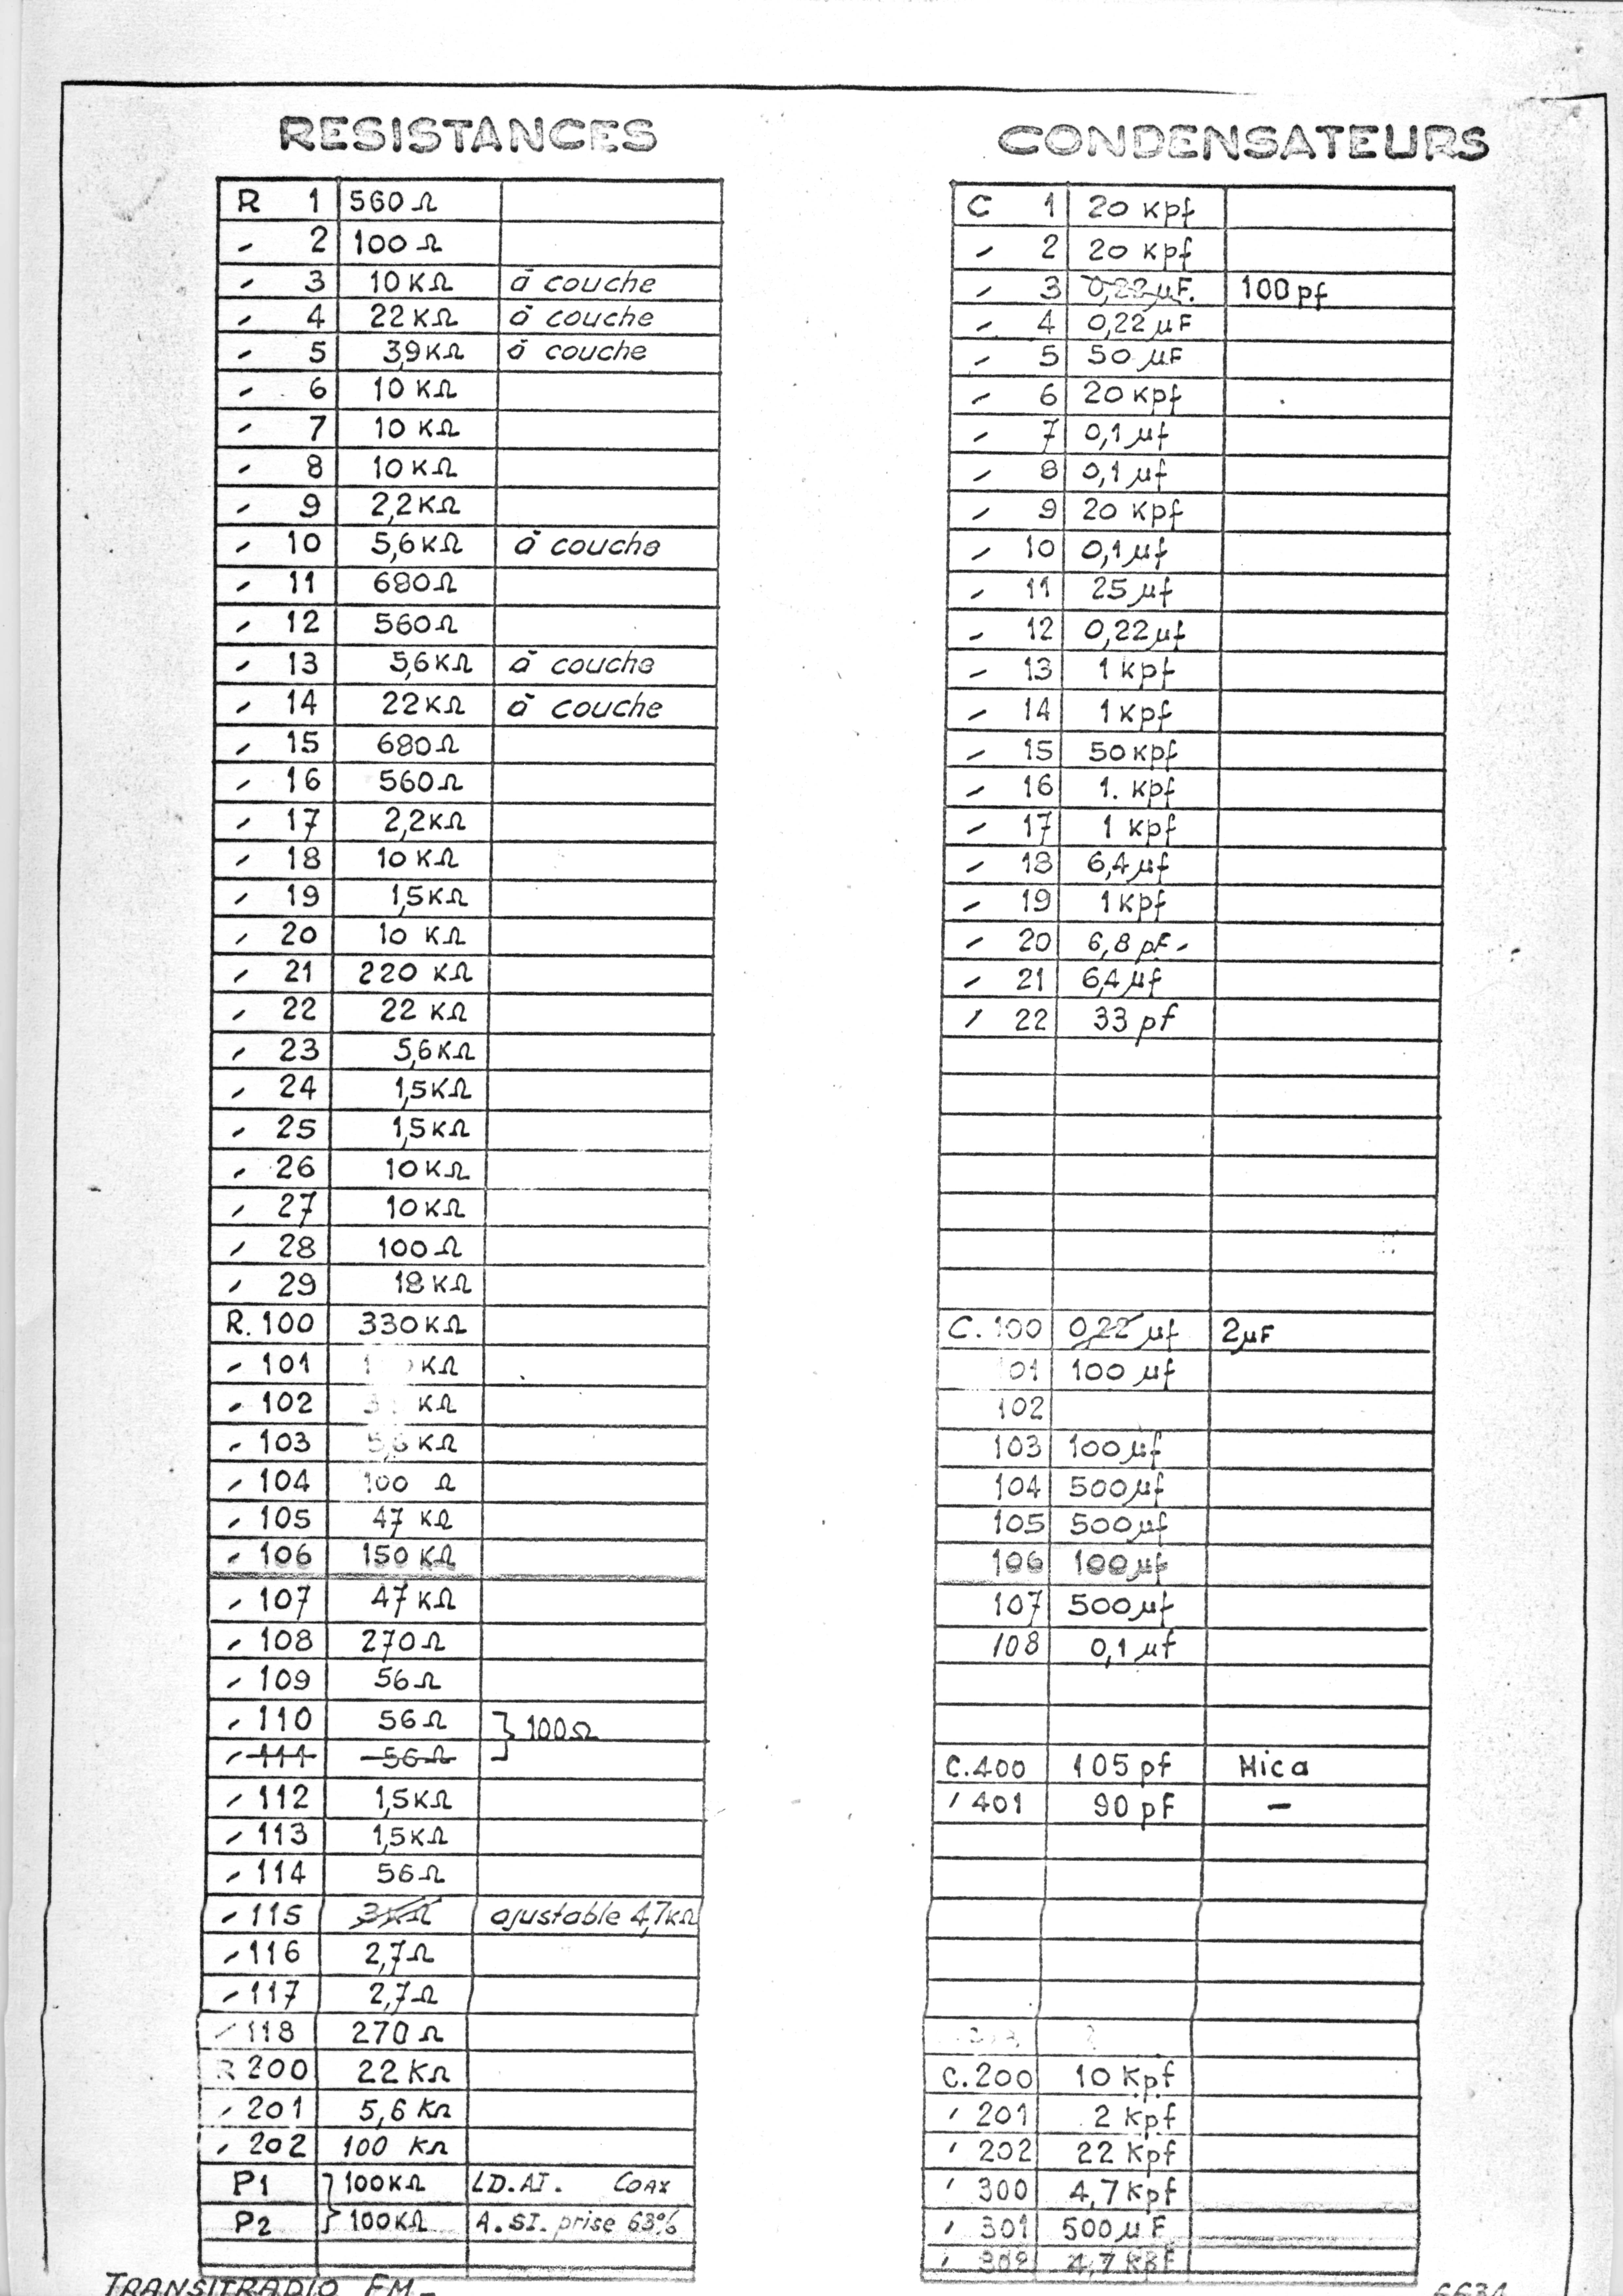 RESISTANCES
R 1 560 Ω
- 2 100 Ω
- 3 10 KΩ à couche
- 4 22 KΩ à couche
- 5 3,9 KΩ à couche
- 6 10 KΩ
- 7 10 KΩ
- 8 10 KΩ
- 9 2,2 KΩ
- 10 5,6 KΩ à couche
- 11 680 Ω
- 12 560 Ω
- 13 5,6 KΩ à couche
- 14 22 KΩ à couche
- 15 680 Ω
- 16 560 Ω
- 17 2,2 KΩ
- 18 10 KΩ
- 19 1,5 KΩ
- 20 10 KΩ
- 21 220 KΩ
- 22 22 KΩ
- 23 5,6 KΩ
- 24 1,5 KΩ
- 25 1,5 KΩ
- 26 10 KΩ
- 27 10 KΩ
- 28 100 Ω
- 29 18 KΩ
R. 100 330 KΩ
- 101 KΩ
- 102 KΩ
- 103 5,6 KΩ
- 104 100 Ω
- 105 47 KΩ
- 106 150 KΩ
- 107 47 KΩ
- 108 270 Ω
- 109 56 Ω
- 110 56 Ω } 100 Ω
- 111 56 Ω
- 112 1,5 KΩ
- 113 1,5 KΩ
- 114 56 Ω
- 115 3KΩ ajustable 4,7KΩ
- 116 2,7 Ω
- 117 2,7 Ω
- 118 270 Ω
R 200 22 KΩ
- 201 5,6 KΩ
- 202 100 KΩ
P1 } 100KΩ LD.AI. COAX
P2 } 100KΩ A.SI. prise 63%
TRANSITRADIO FM -
CONDENSATEURS
C 1 20 kpf
- 2 20 kpf
- 3 0,22 µF. 100 pf
- 4 0,22 µF
- 5 50 µF
- 6 20 kpf
- 7 0,1 µf
- 8 0,1 µf
- 9 20 kpf
- 10 0,1 µf
- 11 25 µf
- 12 0,22 µf
- 13 1 kpf
- 14 1 kpf
- 15 50 kpf
- 16 1. kpf
- 17 1 kpf
- 18 6,4 µf
- 19 1 kpf
- 20 6,8 pF -
- 21 6,4 µf
- 22 33 pf
C. 100 0,22 µf 2µF
101 100 µf
102
103 100 µf
104 500 µf
105 500 µf
106 100 µf
107 500 µf
108 0,1 µf
C. 400 105 pf Mica
' 401 90 pF -
C. 200 10 Kpf
' 201 2 kpf
' 202 22 Kpf
' 300 4,7 kpf
' 301 500 µF
' 302 4,7 KPF
6634